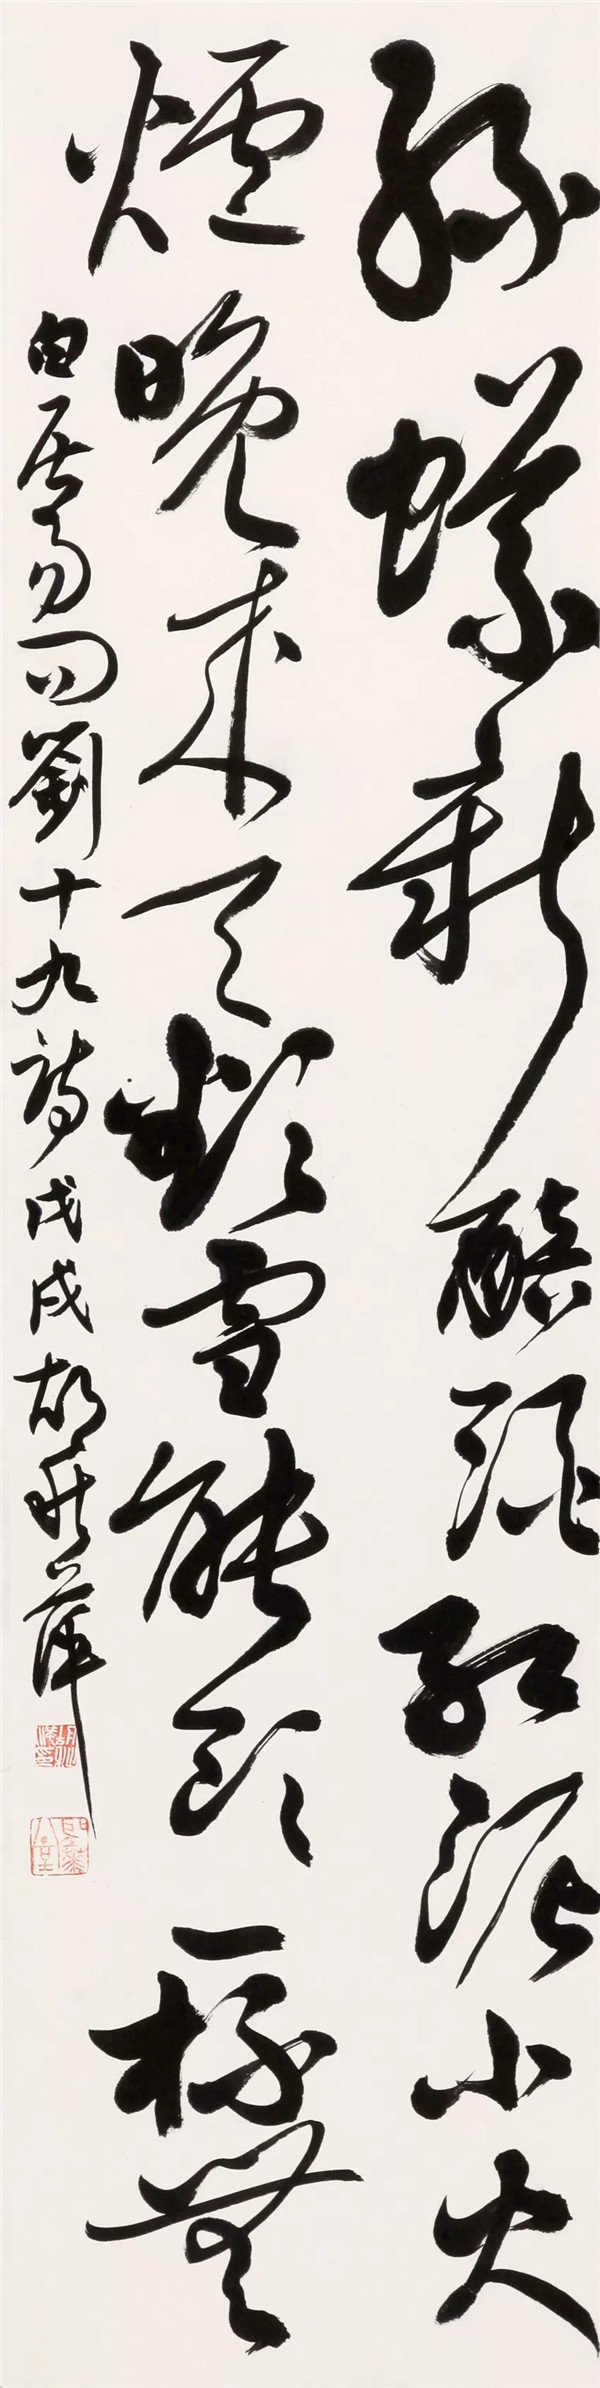 綠蟻新醅酒紅泥小火
爐晚來天欲雪能飲一杯無
白居易問劉十九詩戊戌胡秋萍